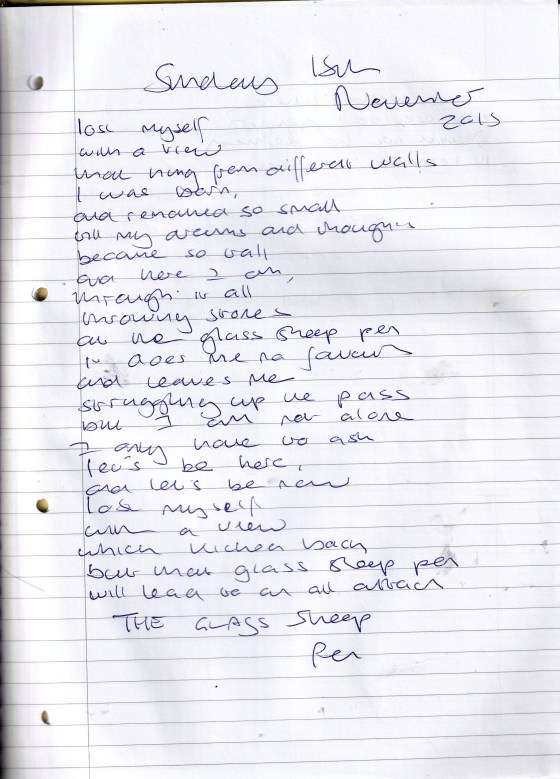 Sunday 15th
November
2015
lose myself
with a view
that hung from different walls
I was born,
and remained so small
till my dreams and thoughts
became so tall
and here I am,
through it all
throwing stones
at the glass sheep pen
it does me no favours
and leaves me
struggling up the pass
but I am not alone
I only have to ask
let's be here,
and let's be now
lose myself
with a view
which kicked back
but that glass sheep pen
will lead to an all attack
THE GLASS Sheep
Pen